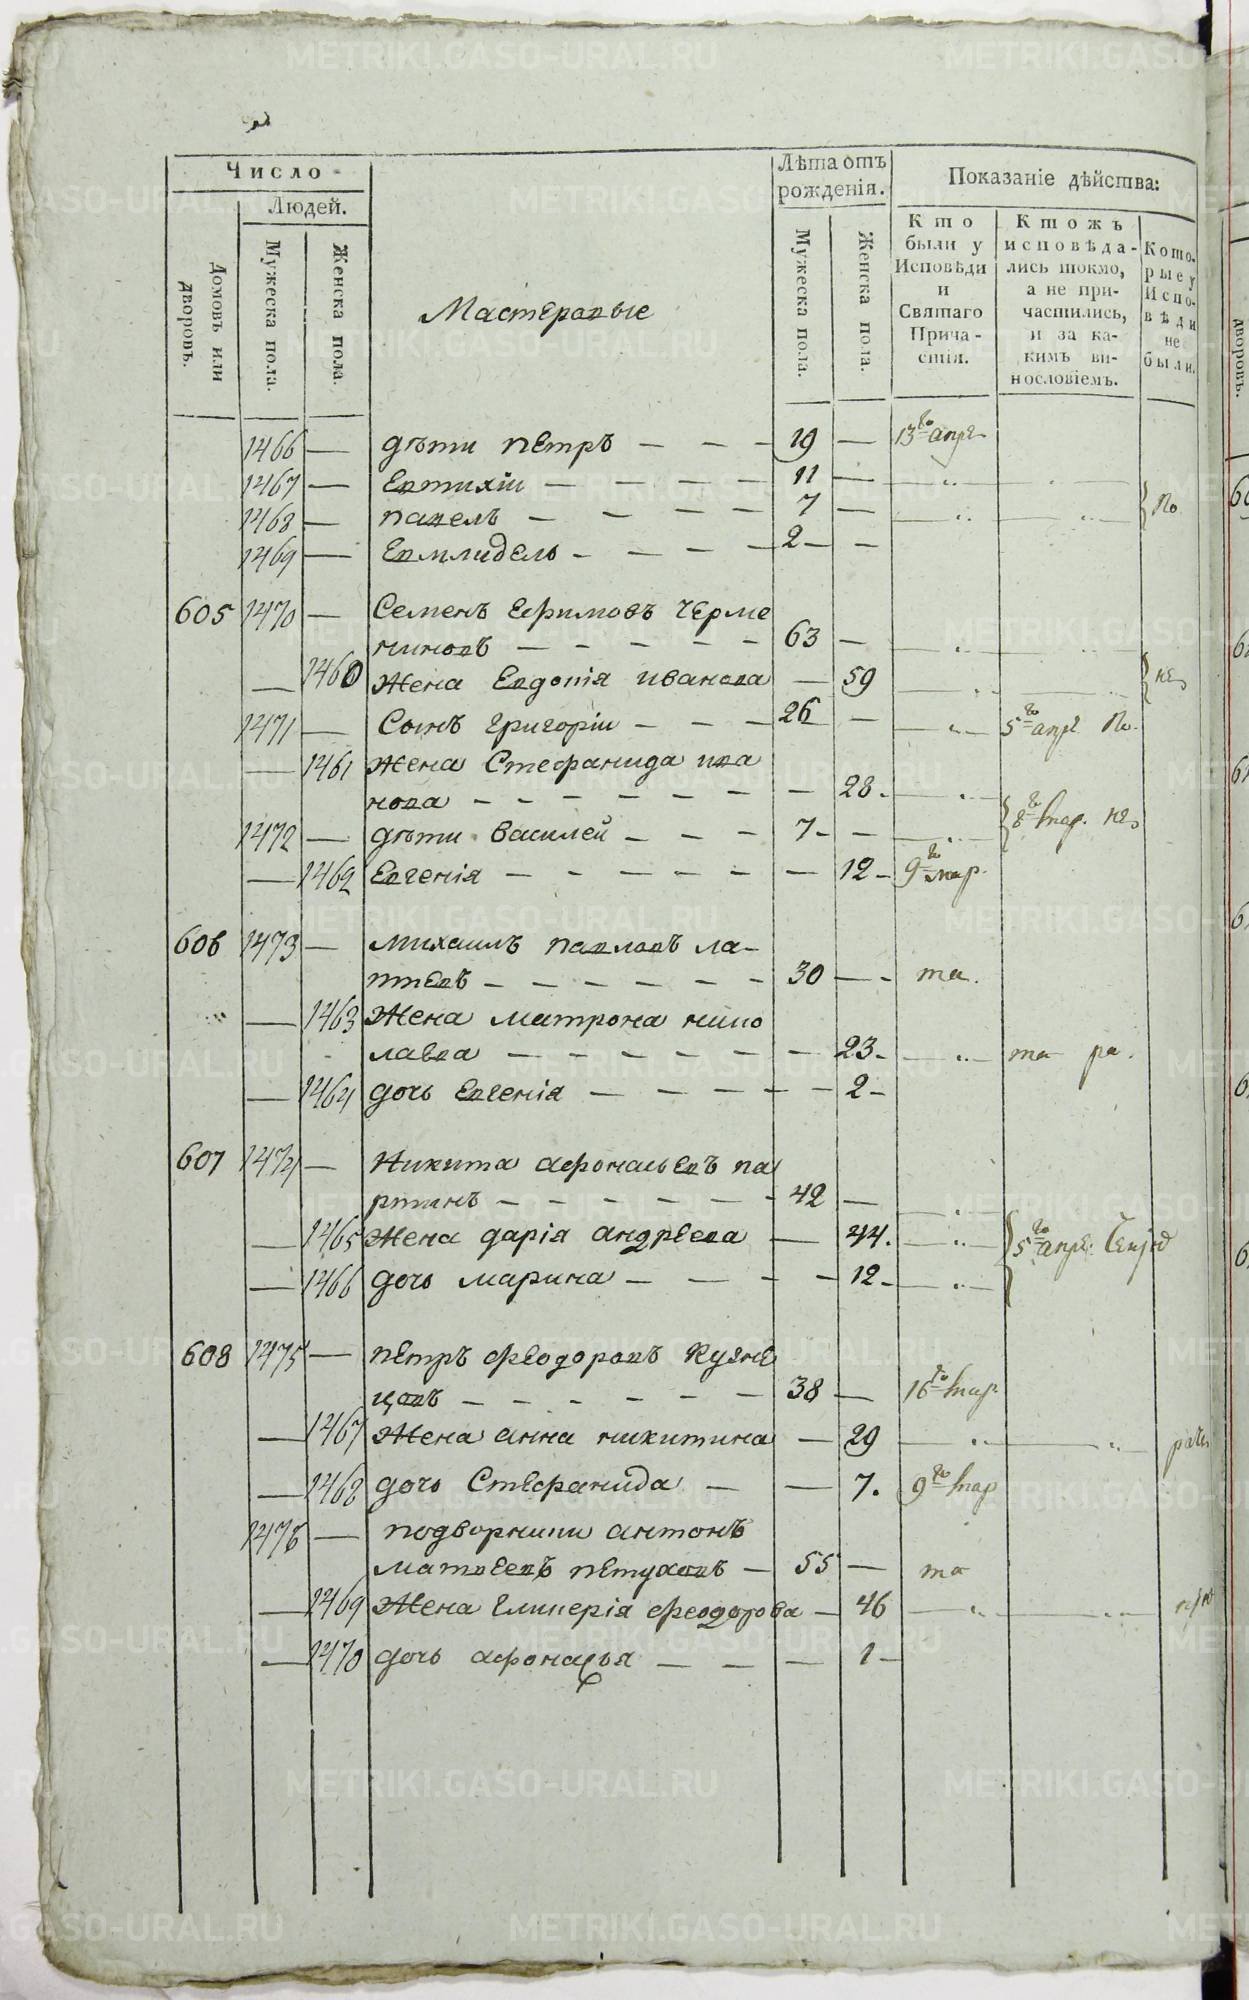 Число
Людей.
Домовъ или дворовъ.
Мужеска пола.
Женска пола.
Мастеравые
Лѣта отъ рожденія.
Мужеска пола.
Женска пола.
Показаніе дѣйства:
Кто были у Исповѣди и Святаго Причастія.
Ктожъ исповѣдались токмо, а не причастились, и за какимъ винословіемъ.
Которые у Исповѣди не были.
1466 — дѣти петръ — — — 19 — 13го апре
1467 — Евтихіи — — — — 11 —
1468 — павелъ — — — — 7 — По
1469 — Евмлидель — — — — 2 — —
605 1470 — Семенъ Ефимовъ черме
ниновъ — — — — — 63 —
— 1460 Жена Евдокія иванова — 59
1471 — Сынъ григоріи — — — 26 — 5го апр. По.
— 1461 Жена Стефанида ива
нова — — — — — — — 28.
1472 — дѣти василей — — — 7 — — 8го мар.
— 1462 Евгенія — — — — — — 12 — 9го мар.
606 1473 — михаилъ павловъ ла-
птевъ — — — — — — 30 — — та.
— 1463 Жена матрона нико
лавва — — — — — — 23. та ра.
— 1464 дочь Евгенія — — — — — 2 —
607 1474 — Никита афонасьевъ па
ртинъ — — — — — — 42 —
— 1465 Жена дарія андреева — 44. 5го апре.
— 1466 дочь марина — — — — 12 —
608 1475 — петръ феодоровъ Кузне
цовъ — — — — — — 38 — 16го мар
— 1467 Жена анна никитина — 29
— 1468 дочь Стефанида — — 7. 9го мар
1476 — подворники антонъ
матвеевъ петуховъ — 55 — та
— 1469 Жена гликерія феодорова — 46
— 1470 дочь афонасья — — — 1 —
METRIKI.GASO-URAL.RU